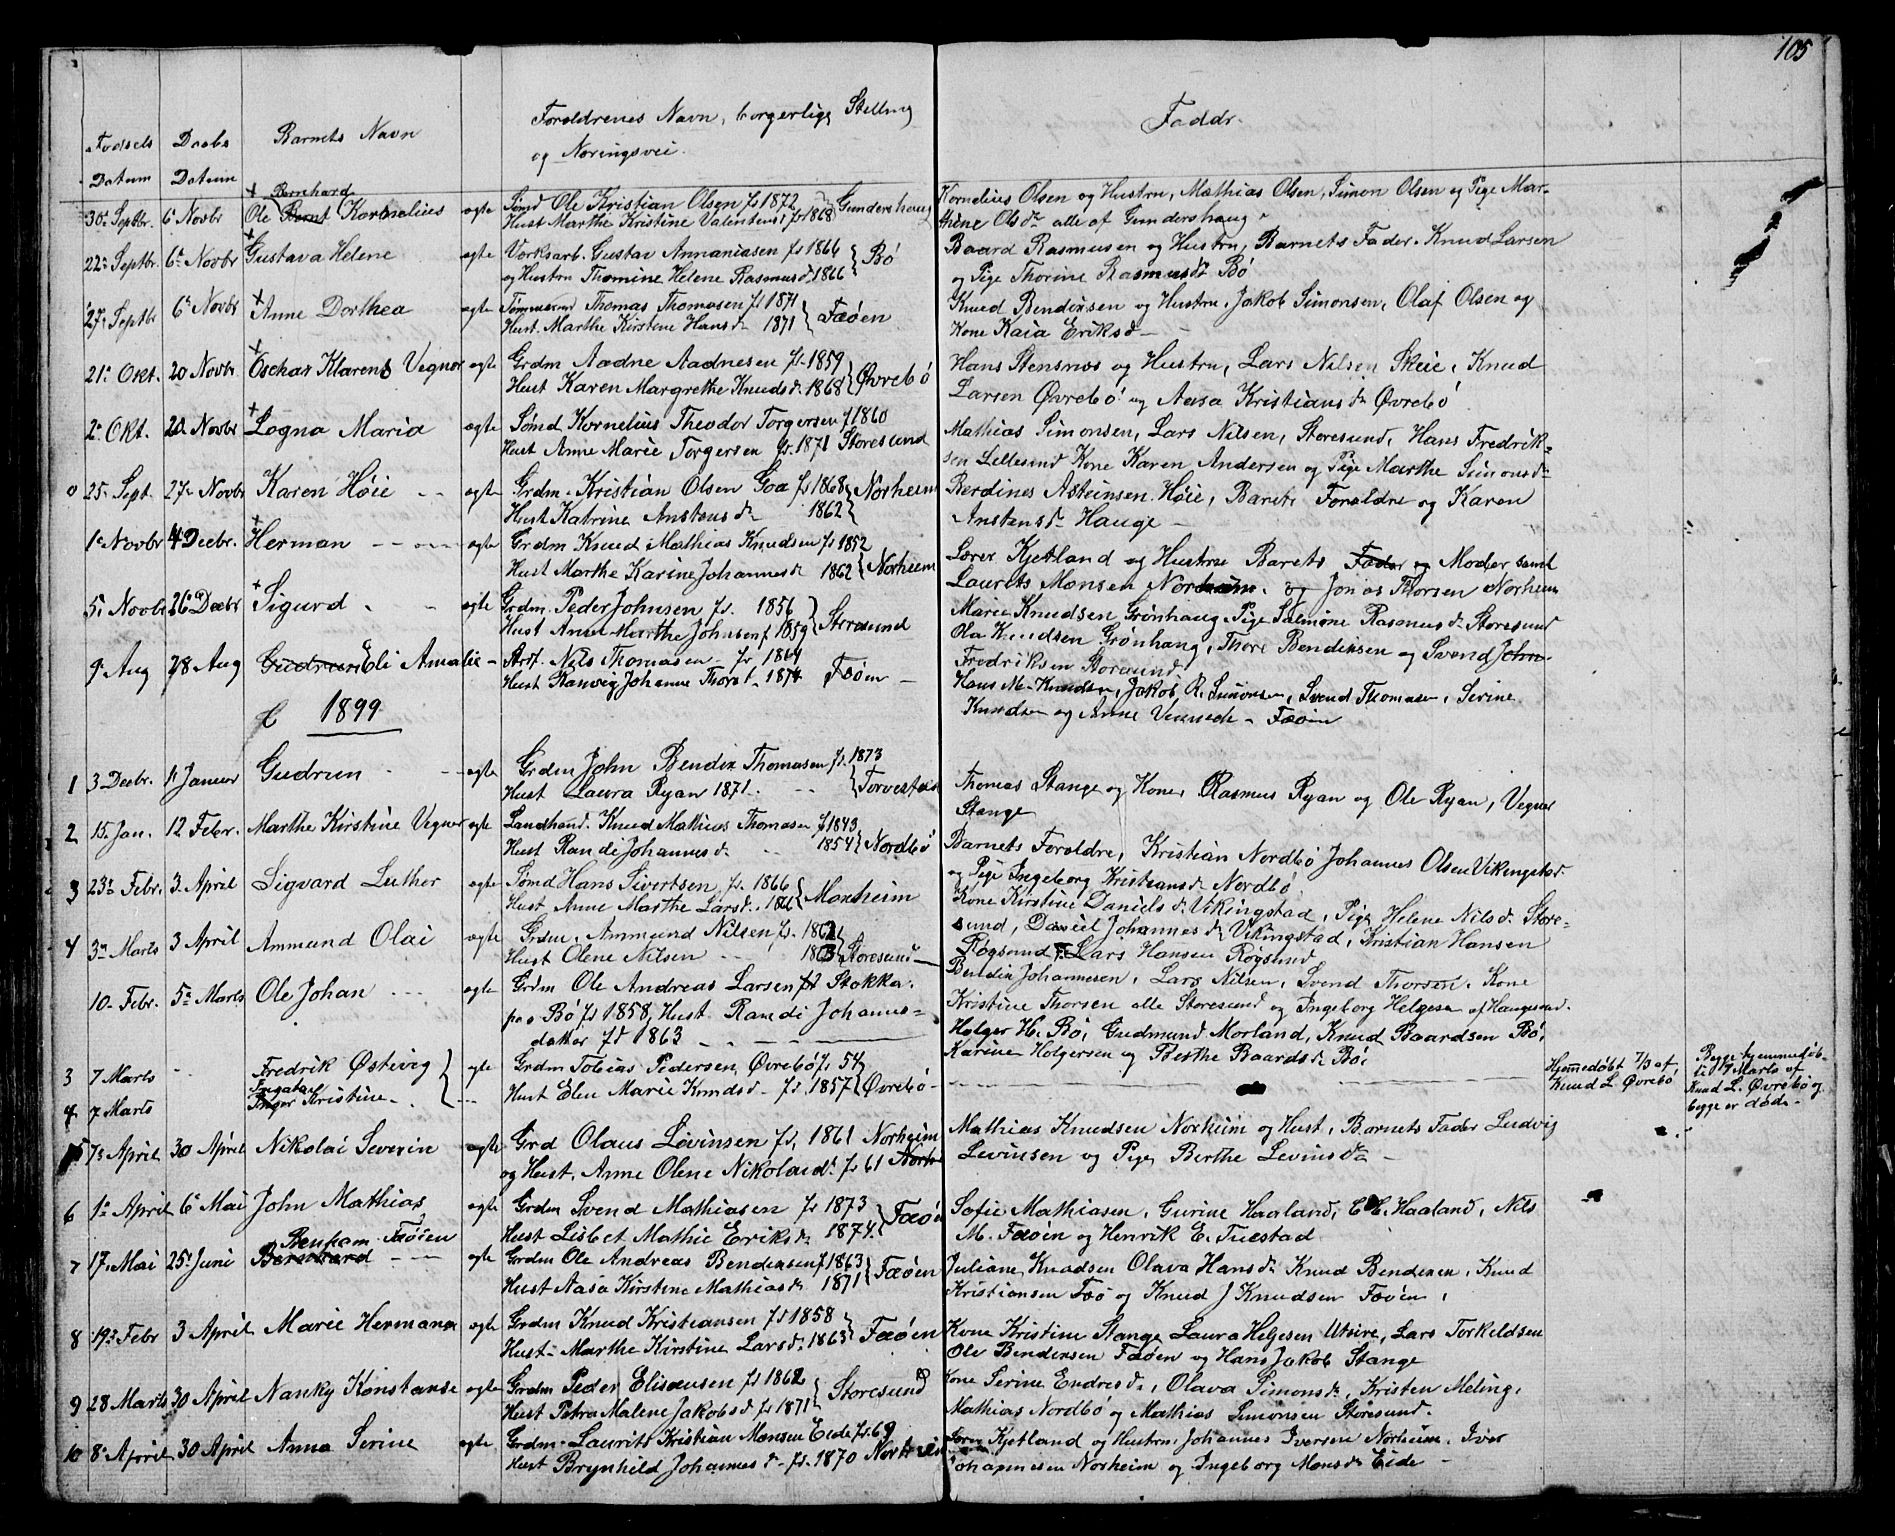 105
Fødsels Datum
Daabs Datum
Barnets Navn
Forældrenes Navn, borgerlige Stilling
og Næringsvei.
Faddr.
30 Septbr. 6 Novbr + Bernhard
Ole Bernt Kornelius ægte Sømd Ole Kristian Olsen fs 1872 } Gundershaug Kornelius Olsen og Hustru, Mathias Olsen, Simon Olsen og Pige Mar-
Hust Marthe Kristine Valentens fs 1868 thine Olsdr alle af Gundershaug
22 Septbr 6 Novbr + Gustava Helene ægte Gustav Annaniasen fs 1864 } Bø Baard Rasmusen og Hustru, Barnets Fader. Knud Larsen
og Hustru Thomine Helene Rasmusd. 1866 og Pige Thorine Rasmusdr Bø
27 Septbr 6 Novbr + Anne Dorthea ægte Thomas Thomasen fs 1871 } Føøen Knud Bendixsen og Hustru, Jakob Simonsen, Olaf Olsen og
Hust. Marthe Kirstene Hansd. 1871 Kone Kaia Eriksd -
21 Okt. 20 Novbr + Oschar Klarents Vegner ægte Grdm Aadne Aadnesen fs. 1859 } Øvrebø Hans Stensnes og Hustru, Lars Nilsen Skeie, Knud
Hust Karen Margrethe Knudsd. 1868 Larsen Øvrebø og Aasa Kristiansdr Øvrebø
2 Okt. 20 Novbr + Logna Maria ægte Sømd Kornelius Theodor Torgersen f 1860 Mathias Simonsen, Lars Nilsen, Storesund, Hans Fredrik-
Hust Anne Marie Torgersen fs. 1871 Storesund sen Lillesund Kone Karen Andersen og Pige Marthe Simonsdr
25 Sept. 27 Novbr Karen Høie ægte Grdm. Kristian Olsen Goa fs 1868 } Norheim Berdines Asteinsen Høie, Barets Forældre og Karen
Hust Katrine Anstensd. 1862 Anstensd. Hauge -
1 Novbr 4 Decbr. + Herman ægte Grdm Knud Mathias Knudsen fs 1852 Lærer Kjetland og Hustru Barets Fader og Moder samt
Hust Marthe Karine Johannesd. 1862 } Norheim Laurits Monsen Norheim. og Jonas Thorsen Norheim
5 Novbr 26 Decbr + Sigurd ægte Grdm. Peder Johnsen fs. 1856 } Storesund Marie Knudsen Grønhaug, Pige Salmine Rasmusd. Storesund
Hust Anne Marthe Johnsen f 1859 Ola Knudsen Grønhaug, Thore Bendixsen og Svend John-
9 Aug 28 Aug Gudrun Eli Amalie - Nils Thomasen fs 1864 Fredriksen Storesund
Hust Ranveig Johanne Thorsd. 1874 Føøen - Hans M. Knudsen, Jakob R. Simonsen, Svend Thomasen, Serine
1899 Knudsen og Anne - Føøen
1 3 Decbr. 1 Januar Gudrun ægte Grdm John Bendix Thomasen fs. 1873 } Torvestad Thomas Stange og Kone, Rasmus Ryan og Ole Ryan, Vegner
Hust Laura Ryan 1871. Stange
2 15 Jan. 12 Febr. Marthe Kirstine Vegner ægte Landhand. Knud Mathias Thomasen f 1843 Barnets Forældre, Kristian Nordbø Johannes Olsen Vikingstad
Hust Randi Johannesd. 1854 } Nordbø og Pige Ingeborg Kristiansd. Nordbø
3 23 Febr. 3 April Sigvard Luther ægte Sømd Hans Sivertsen fs. 1866 } Norheim Kone Kirstine Danielsd. Vikingstad, Pige Helene Nilsd. Store-
Hust Anne Marthe Larsd. 1866 sund, Daniel Johannesd. Vikingstad, Kristian Hansen
4 3 Marts 3 April Ammund Olai ægte Grdm. Ammund Nilsen fs. 1862 Røgsund, Lars Hansen Røgsund
Hust Olene Nilsen 1863 Storesund - Bendix Johannesen, Lars Nilsen, Svend Thorsen. Kone
10 Febr. 5 Marts Ole Johan ægte Grdm Ole Andreas Larsen fs Stokka. Kristine Thorsen alle Storesund og Ingeborg Helgesen af Haugesund.
paa Bø fs 1858, Hust Randi Johannes- Holger H. Bø, Gudmund Morland, Knud Baardsen Bø,
datter fs 1863 Karine Holgersen og Berthe Baardsd. Bø,
3 7 Marts Fredrik Østivig } ægte Grdm Tobias Pedersen Øvrebø fs 54 Hjemmedøbt 7/3 af Knud L. Øvrebø
4 7 Marts Ingatar
Inger Kristine Hust Elen Marie Knudsd. fs. 1857 } Øvrebø - Begge hjemmedøb-
te 7 Marts af
Knud L. Øvrebø og
begge er døde -
5 7 April 30 April Nikolai Severin ægte Grd Olaus Løvinsen fs. 1861 Norheim Mathias Knudsen Norheim og Hust, Barnets Fader Ludvig
og Hust. Anne Olene Nikolaid. fs 61 Norh Levinsen og Pige Berthe Levinsdr -
6 1 April 6 Mai John Mathias ægte Grdm Svend Mathiasen fs 1873 } Føøen Sofie Mathiasen, Gurine Haaland, E. Haaland, Nils
Hust Lisbet Mathie Eriksd. 1874. M. Føøen og Henrik E. Tuestad
7 17 Mai 25 Juni Benham Føøen
Bernhard ægte Grdm Ole Andreas Bendixsen f 1863 } Føøen Juliane Knudsen Olava Hansd. Knud Bendixen, Knud
Hust Aasa Kirstine Mathiasd. 1871 Kristiansen Føø og Knud J Knudsen Føøen,
8 19 Febr 3 April Marie Hermana ægte Grdm Knud Kristiansen fs 1858 } Føøen Kone Kristine Stange, Laura Helgesen Utsire, Lars Torkeldsen
Hust - Marthe Kirstine Larsd. 1863 Ole Bendixsen Føøen og Hans Jakob Stange
9 28 Marts 30 April Nanky Konstanse ægte Grdm Peder Eliseusen fs 1862 } Storesund Kone Serine Endresd., Olava Simonsd., Kristen Meling,
Hust Petra Malene Jakobsd. fs 1871 Mathias Nordbø og Mathias Simonsen Storesund.
10 8 April 30 April Anna Serine ægte Grdm. Laurits Kristian Monsen Eide fs. 69 Lærer Kjetland og Hustru, Johannes Iversen Norheim. Iver
Hust Brynhild Johannesd. fs. 1870 Norheim Johannesen Norheim og Ingeborg Monsdr Eide -